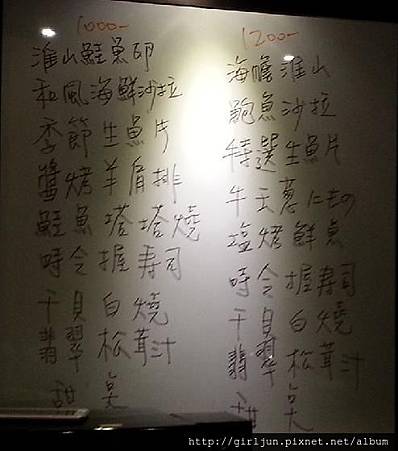 1000-
淮山鮭魚卵
和風海鮮沙拉
季節生魚片
醬烤羊肩排
鮭魚塔塔燒
時令握寿司
干貝白燒
翡翠松茸汁
甜点
1200-
海膽淮山
鮑魚沙拉
特選生魚片
牛玉蔥にもの
塩烤鮮魚
時令握寿司
干貝白燒
翡翠松茸汁
甜点
http://girljun.pixnet.net/album